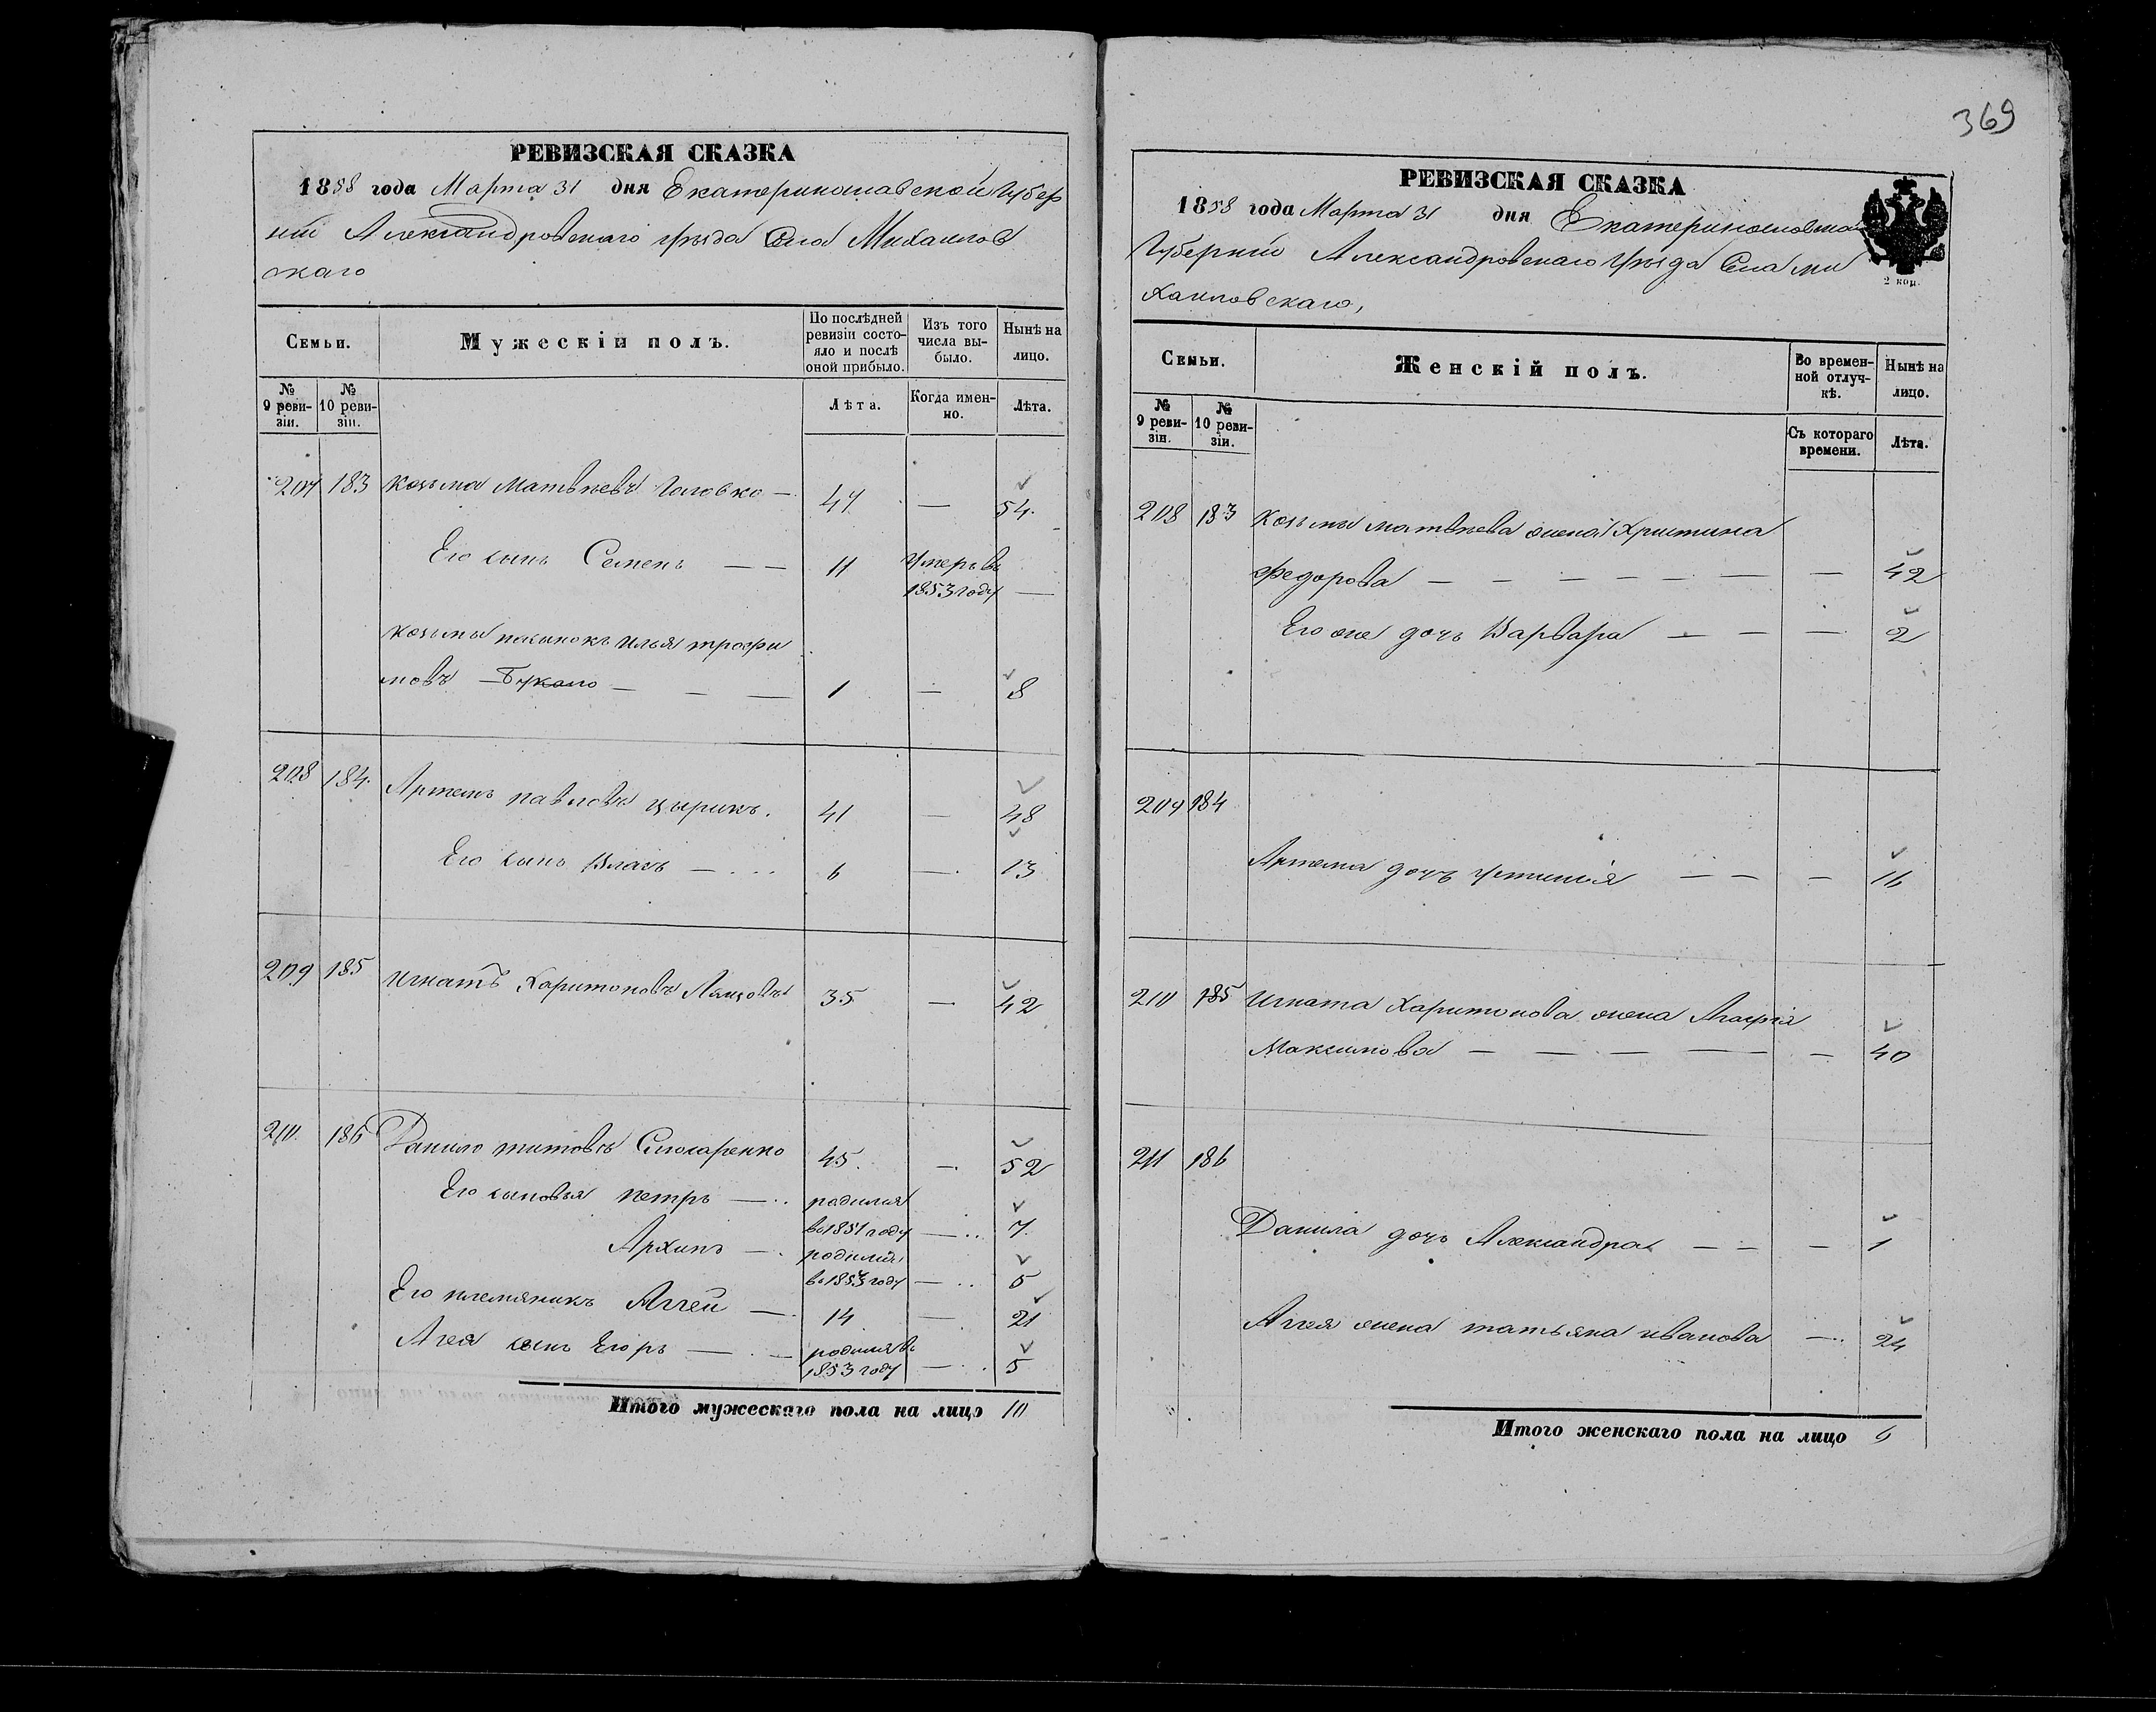 РЕВИЗСКАЯ СКАЗКА
1858 года Марта 31 дня Екатеринославской Губер
ніи Александровскаго уѣзда Села Михаилов
скаго
Семьи.
Мужескій полъ.
По послѣдней ревизіи состояло и послѣ оной прибыло.
Изъ того числа выбыло.
Нынѣ на лицо.
№ 9 ревизіи.
№ 10 ревизіи.
Лѣта.
Когда именно.
Лѣта.
207 183 Козьма Матвѣевъ Головко — 47 — 54
Его сынъ Семенъ — — 11 Умеръ въ
1853 году —
Козьмы пасынокъ Илья Трофи
мовъ — — — 1 — 8
208 184 Артемъ Павловъ Цырикъ. 41 — 48
Его сынъ Власъ — 6 — 13
209 185 Игнатъ Харитоновъ 35 — 42
210 186 Данило Титовъ Слюсаренко 45 — 52
Его сыновья Петръ — родился
въ 1851 году — 7
Архипъ — родился
въ 1853 году — 5
Его племяникъ Аггей — 14 — 21
Агея сынъ Егоръ — родился въ
1853 году — 5
Итого мужескаго пола на лицо 10
369
РЕВИЗСКАЯ СКАЗКА
1858 года Марта 31 дня Екатеринославской
Губерніи Александровскаго уѣзда Села Ми
хаиловскаго,
2 коп.
Семьи.
Женскій полъ.
Во временной отлучкѣ.
Нынѣ на лицо.
№ 9 ревизіи.
№ 10 ревизіи.
Съ котораго времени.
Лѣта.
208 183 Козьмы Матвѣева жена Христина
Федорова — — — — — — — 42
Его же дочь Варвара — — — 2
209 184
Артема дочь Устинія — — — 16
210 185 Игната Харитонова жена Агафія
Максимова — — — — — 40
211 186
Данила дочь Александра — — — 1
Аггея жена Татьяна Иванова — 24
Итого женскаго пола на лицо 6